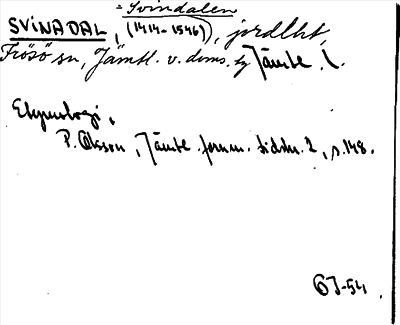 = Svindalen
SVINADAL, (1414-1546), jordlht,
Frösö sn, Jämtl. v. doms. Jämtl. l.
Etymologi,
P. Olsson, Jämtl. fornm. tidskr. 2, s. 148.
63-54.